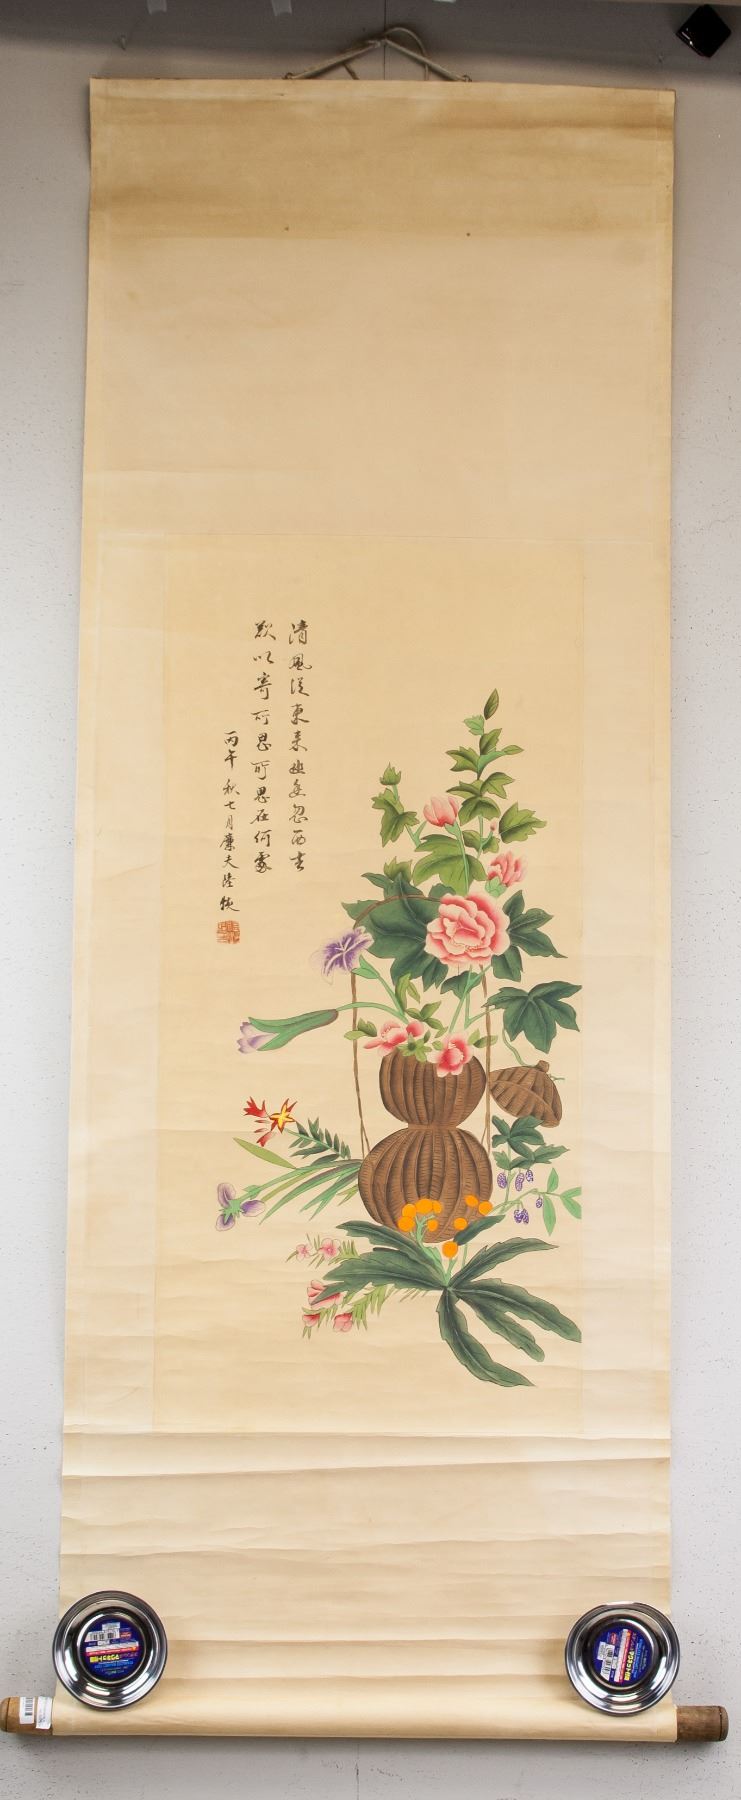 清風從東來幽香忽西去
歎以寄所思所思在何處
丙午秋七月廉夫陸恢